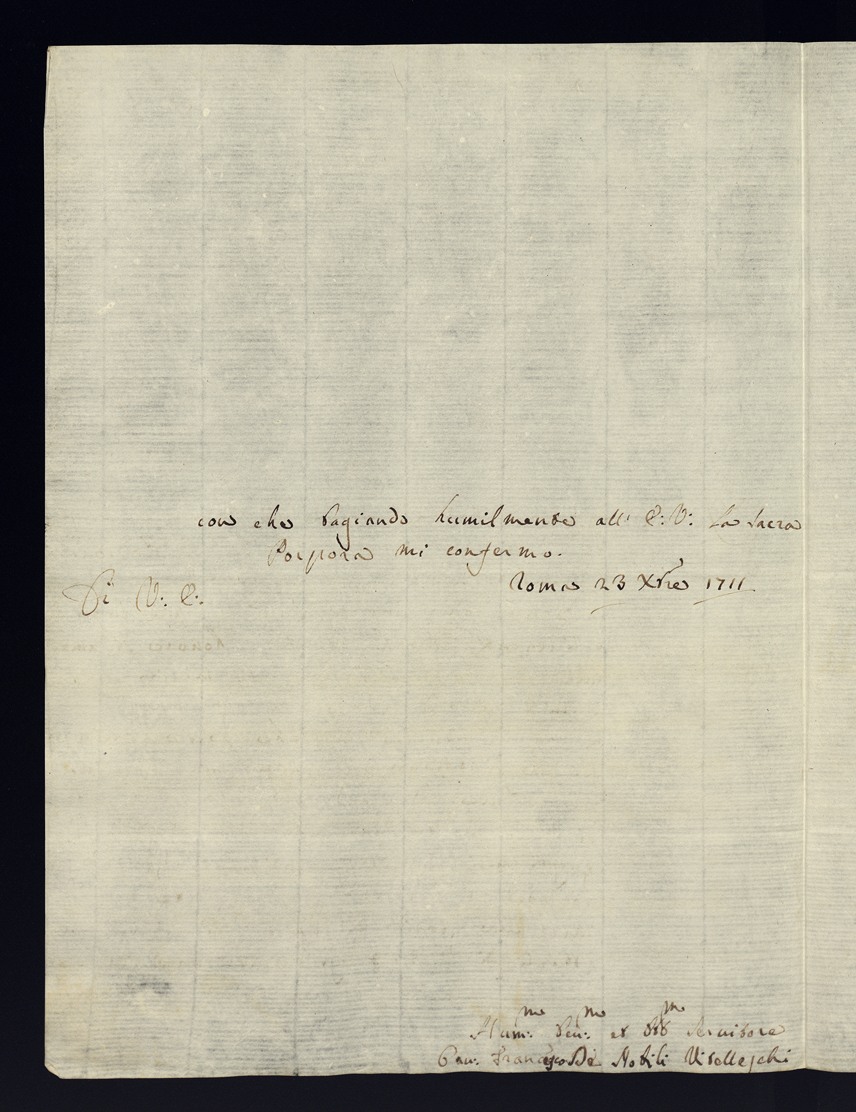 con che bagiando humilmente all' E: V: la sacra
Porpora mi confermo.
Roma 23 Xbre 1711.
Di V: E:
Hum:mo Dev:mo et Obb:mo Servitore
Cav: Francesco De Nobili Vitelleschi